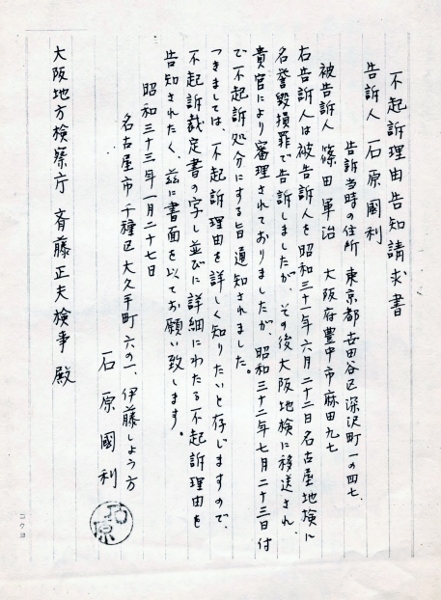 不起訴理由告知請求書
告訴人 石原國利
告訴当時の住所 東京都世田谷区深沢町一の四七
被告訴人 篠田軍治 大阪府豊中市麻田九七
右告訴人は被告訴人を昭和三十一年六月二十二日名古屋地検に
名誉毀損罪で告訴しましたが、その後大阪地検に移送され
貴官により審理されておりましたが、昭和三十二年七月二十三日付
で不起訴処分にする旨通知されました。
つきましては、不起訴理由を詳しく知りたいと存じますので、
不起訴裁定書の写し並びに詳細にわたる不起訴理由を
告知されたく、茲に書面を以てお願い致します。
昭和三十三年一月二十七日
名古屋市千種区大久手町六の一、伊藤しよう方
石原國利
石原
大阪地方検察庁 斉藤正夫検事殿
コクヨ